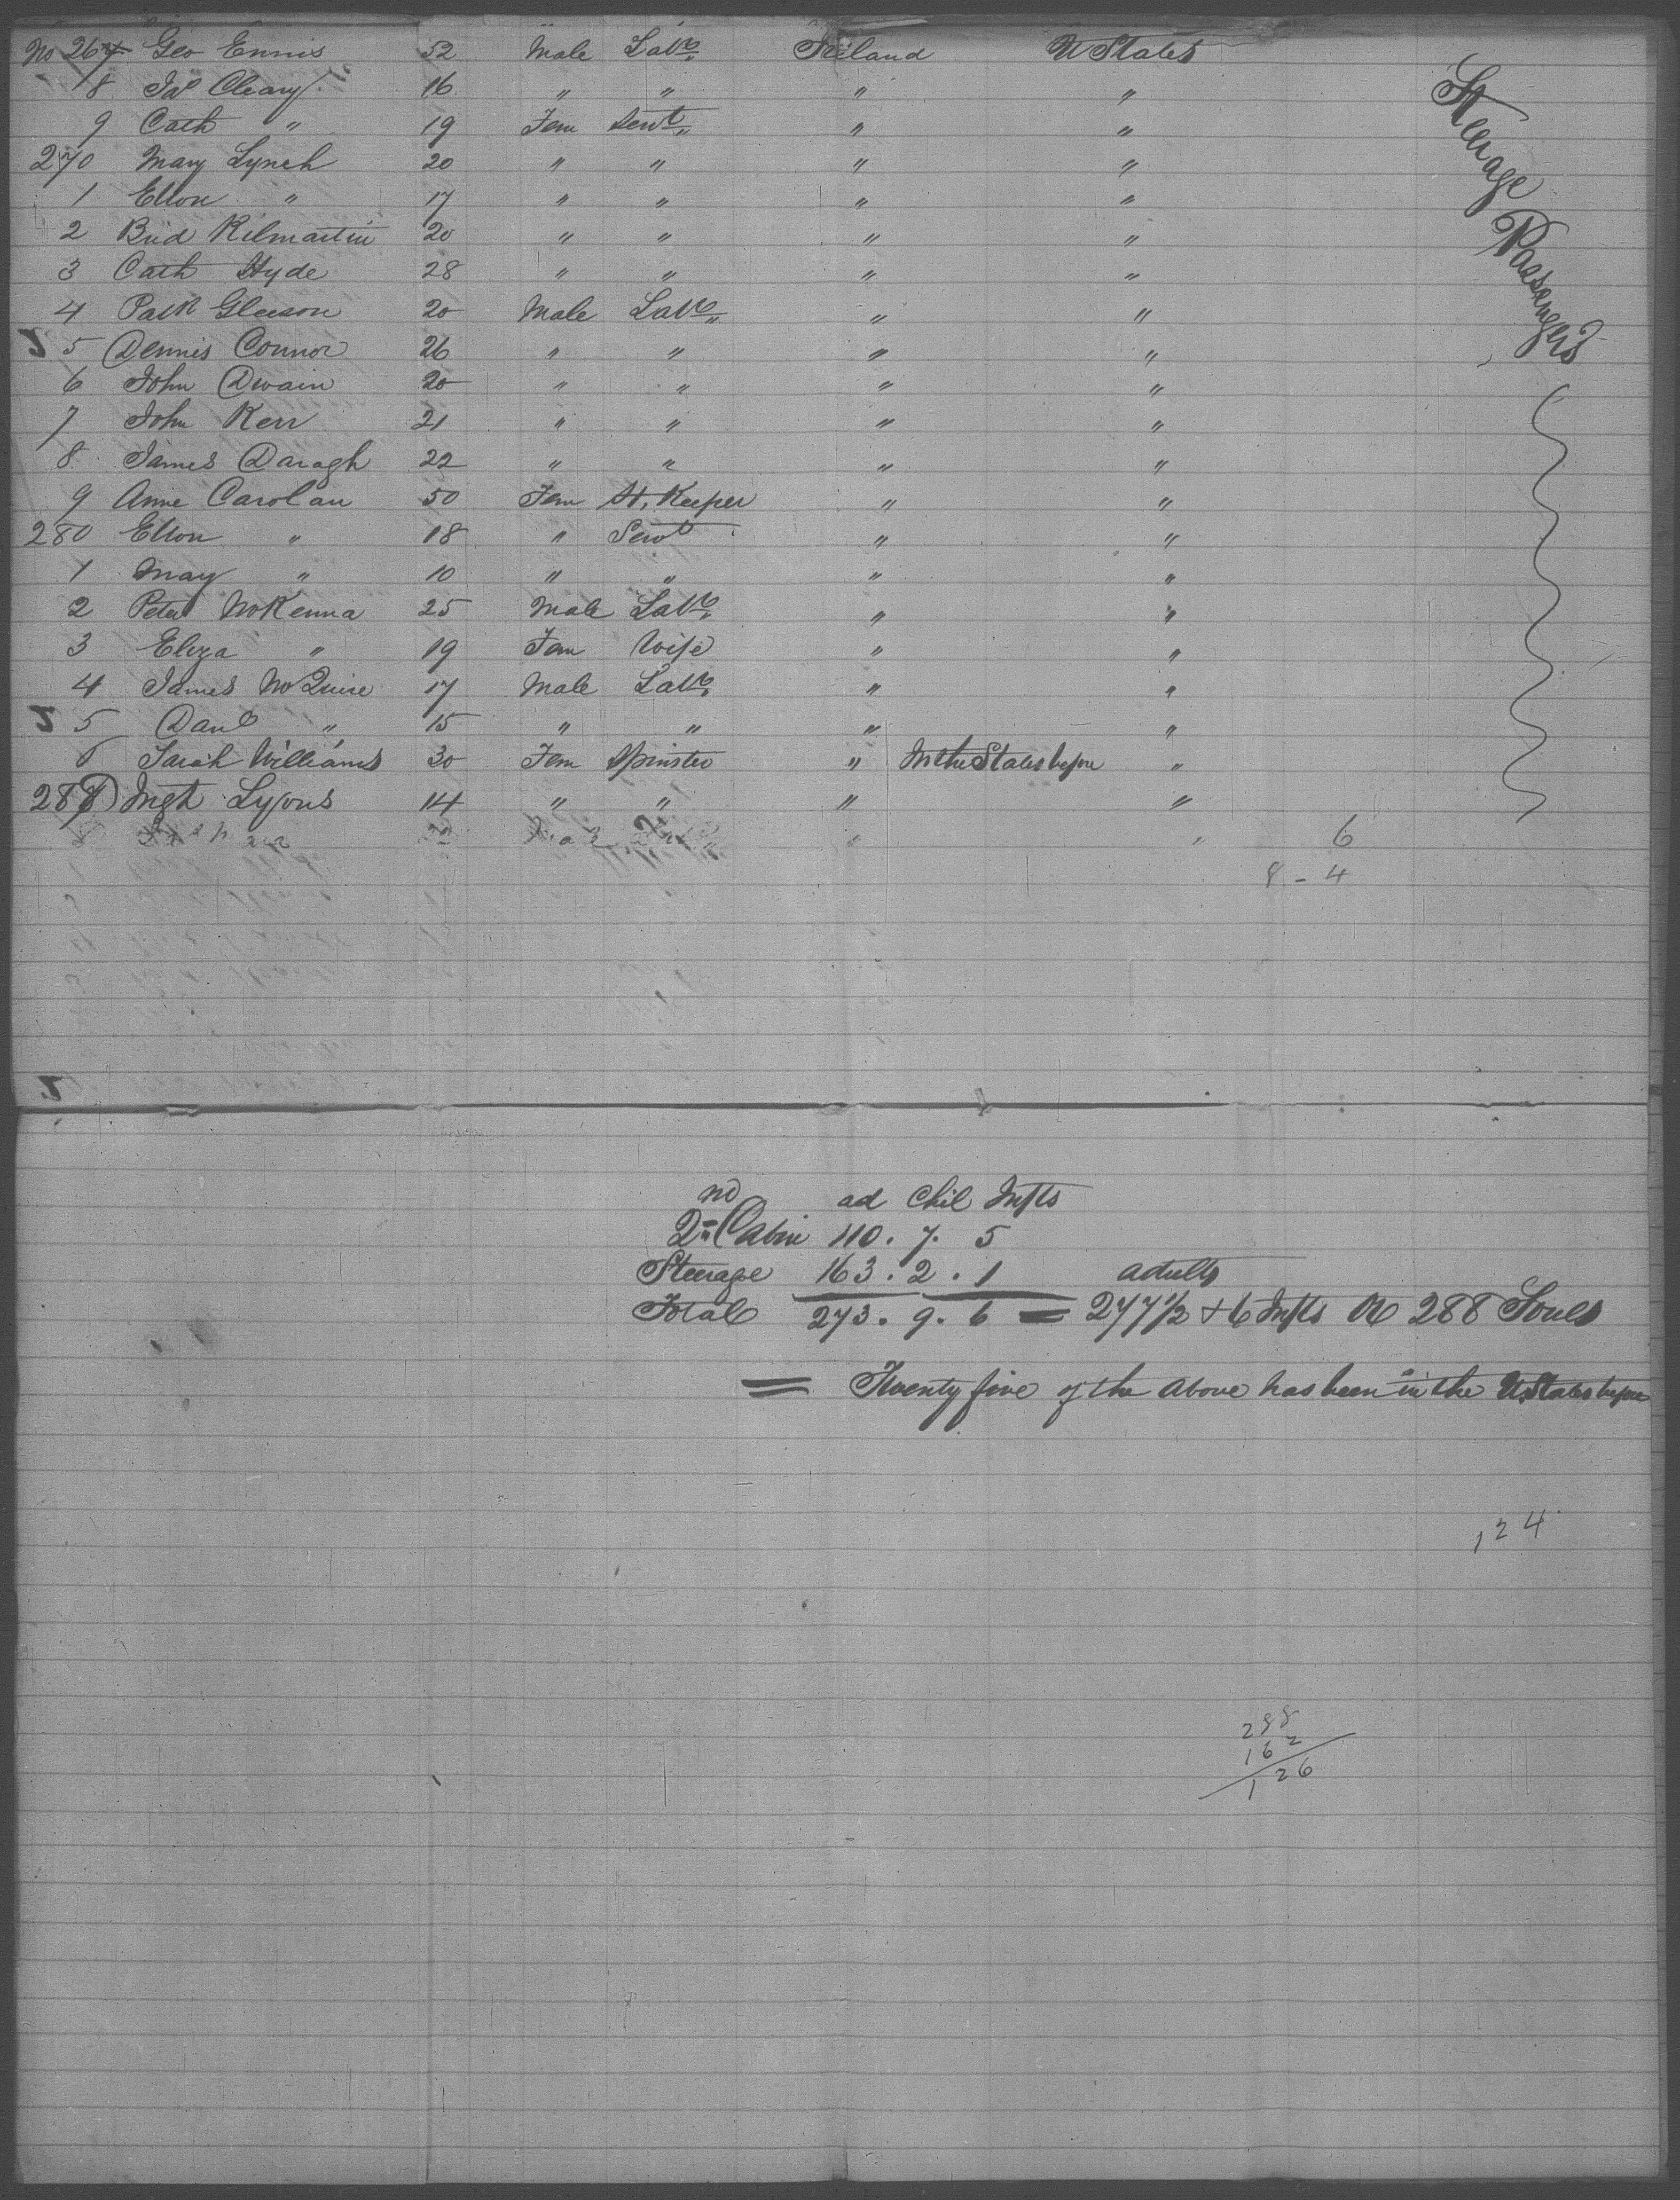 No 267 Geo Ennis 52 Male Labr Ireland U States
8 Jas Cleary 16 " " " "
9 Cath " 19 Fem Servt " "
270 Mary Lynch 20 " " " "
1 Ellen " 17 " " " "
2 Brid Kilmartin 20 " " " "
3 Cath Hyde 28 " " " "
4 Patk Gleeson 20 Male Labr " "
5 Dennis Connor 26 " " " "
6 John Dwain 20 " " " "
7 John Kerr 21 " " " "
8 James Daragh 22 " " " "
9 Anne Carolan 50 Fem H. Keeper " "
280 Ellen " 18 " Servt " "
1 Mary " 10 " " " "
2 Peter McKenna 25 Male Labr " "
3 Eliza " 19 Fem Wife " "
4 James McQuire 17 Male Labr " "
5 Danl " 15 " " " "
6 Sarah Williams 30 Fem Spinster " In the States before "
288 Mgt Lyons 14 " " " "
Steerage Passengers
6
8 - 4
ad Chil Infts
2nd Cabin 110 . 7 . 5
Steerage 163 . 2 . 1 adults
Total 273 . 9 . 6 = 277 1/2 + 6 Infts or 288 Souls
= Twenty five of the above has been in the U. States before
124
288
162
126